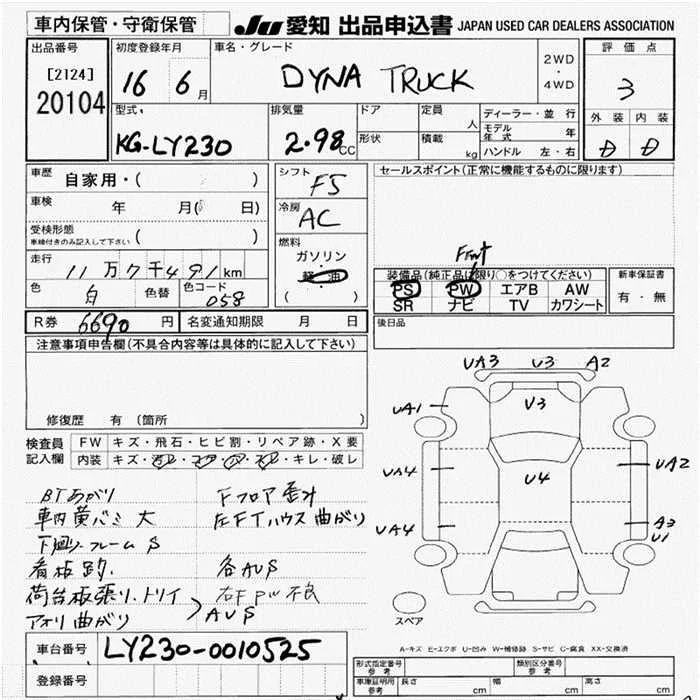 車内保管・守衛保管
JU 愛知 出品申込書 JAPAN USED CAR DEALERS ASSOCIATION
出品番号
[2124]
20104
初度登録年月
16 6月
車名・グレード
DYNA TRUCK
2WD
・
4WD
評価点
3
外装 内装
D D
型式
KG-LY230
排気量
2.98cc
ドア
形状
定員
人
積載
kg
ディーラー・並行
モデル年式 年
ハンドル 左・右
車歴
自家用・( )
車検 年 月( 日)
受検形態
車検付きのみ記入して下さい ( )
走行
11万7千491km
色 白 色替 色コード 058
シフト
F5
冷房
AC
燃料
ガソリン
軽油
( )
セールスポイント(正常に機能するものに限ります)
Front
装備品(純正品に限り○をつけてください)
PS PW エアB AW
SR ナビ TV カワシート
新車保証書
有・無
R券 6690円
名変通知期限 月 日
後日品
注意事項申告欄(不具合内容等は具体的に記入して下さい)
修復歴 有 (箇所 )
検査員
記入欄
FW キズ・飛石・ヒビ割・リペア跡・X要
内装 キズ・汚レ・コゲ・穴・スレ・キレ・破レ
BTあがり
車内黄バミ大
下廻り・フレームS
看板跡
荷台板張り・トリイ
アオリ曲がり
Fフロア歪み
左FTハウス曲がり
各AUS
右FPW不良
AUS
UA3 U3 A2
UA1 U3
UA4 U4 UA2
UA4 A3
U1
スペア
A=キズ E=エクボ U=凹み W=補修跡 S=サビ C=腐食 XX=交換済
車台番号 LY230-0010525
登録番号
形式指定番号
参考
類別区分番号
参考
車庫証明用
参考
長さ cm 幅 cm 高さ cm